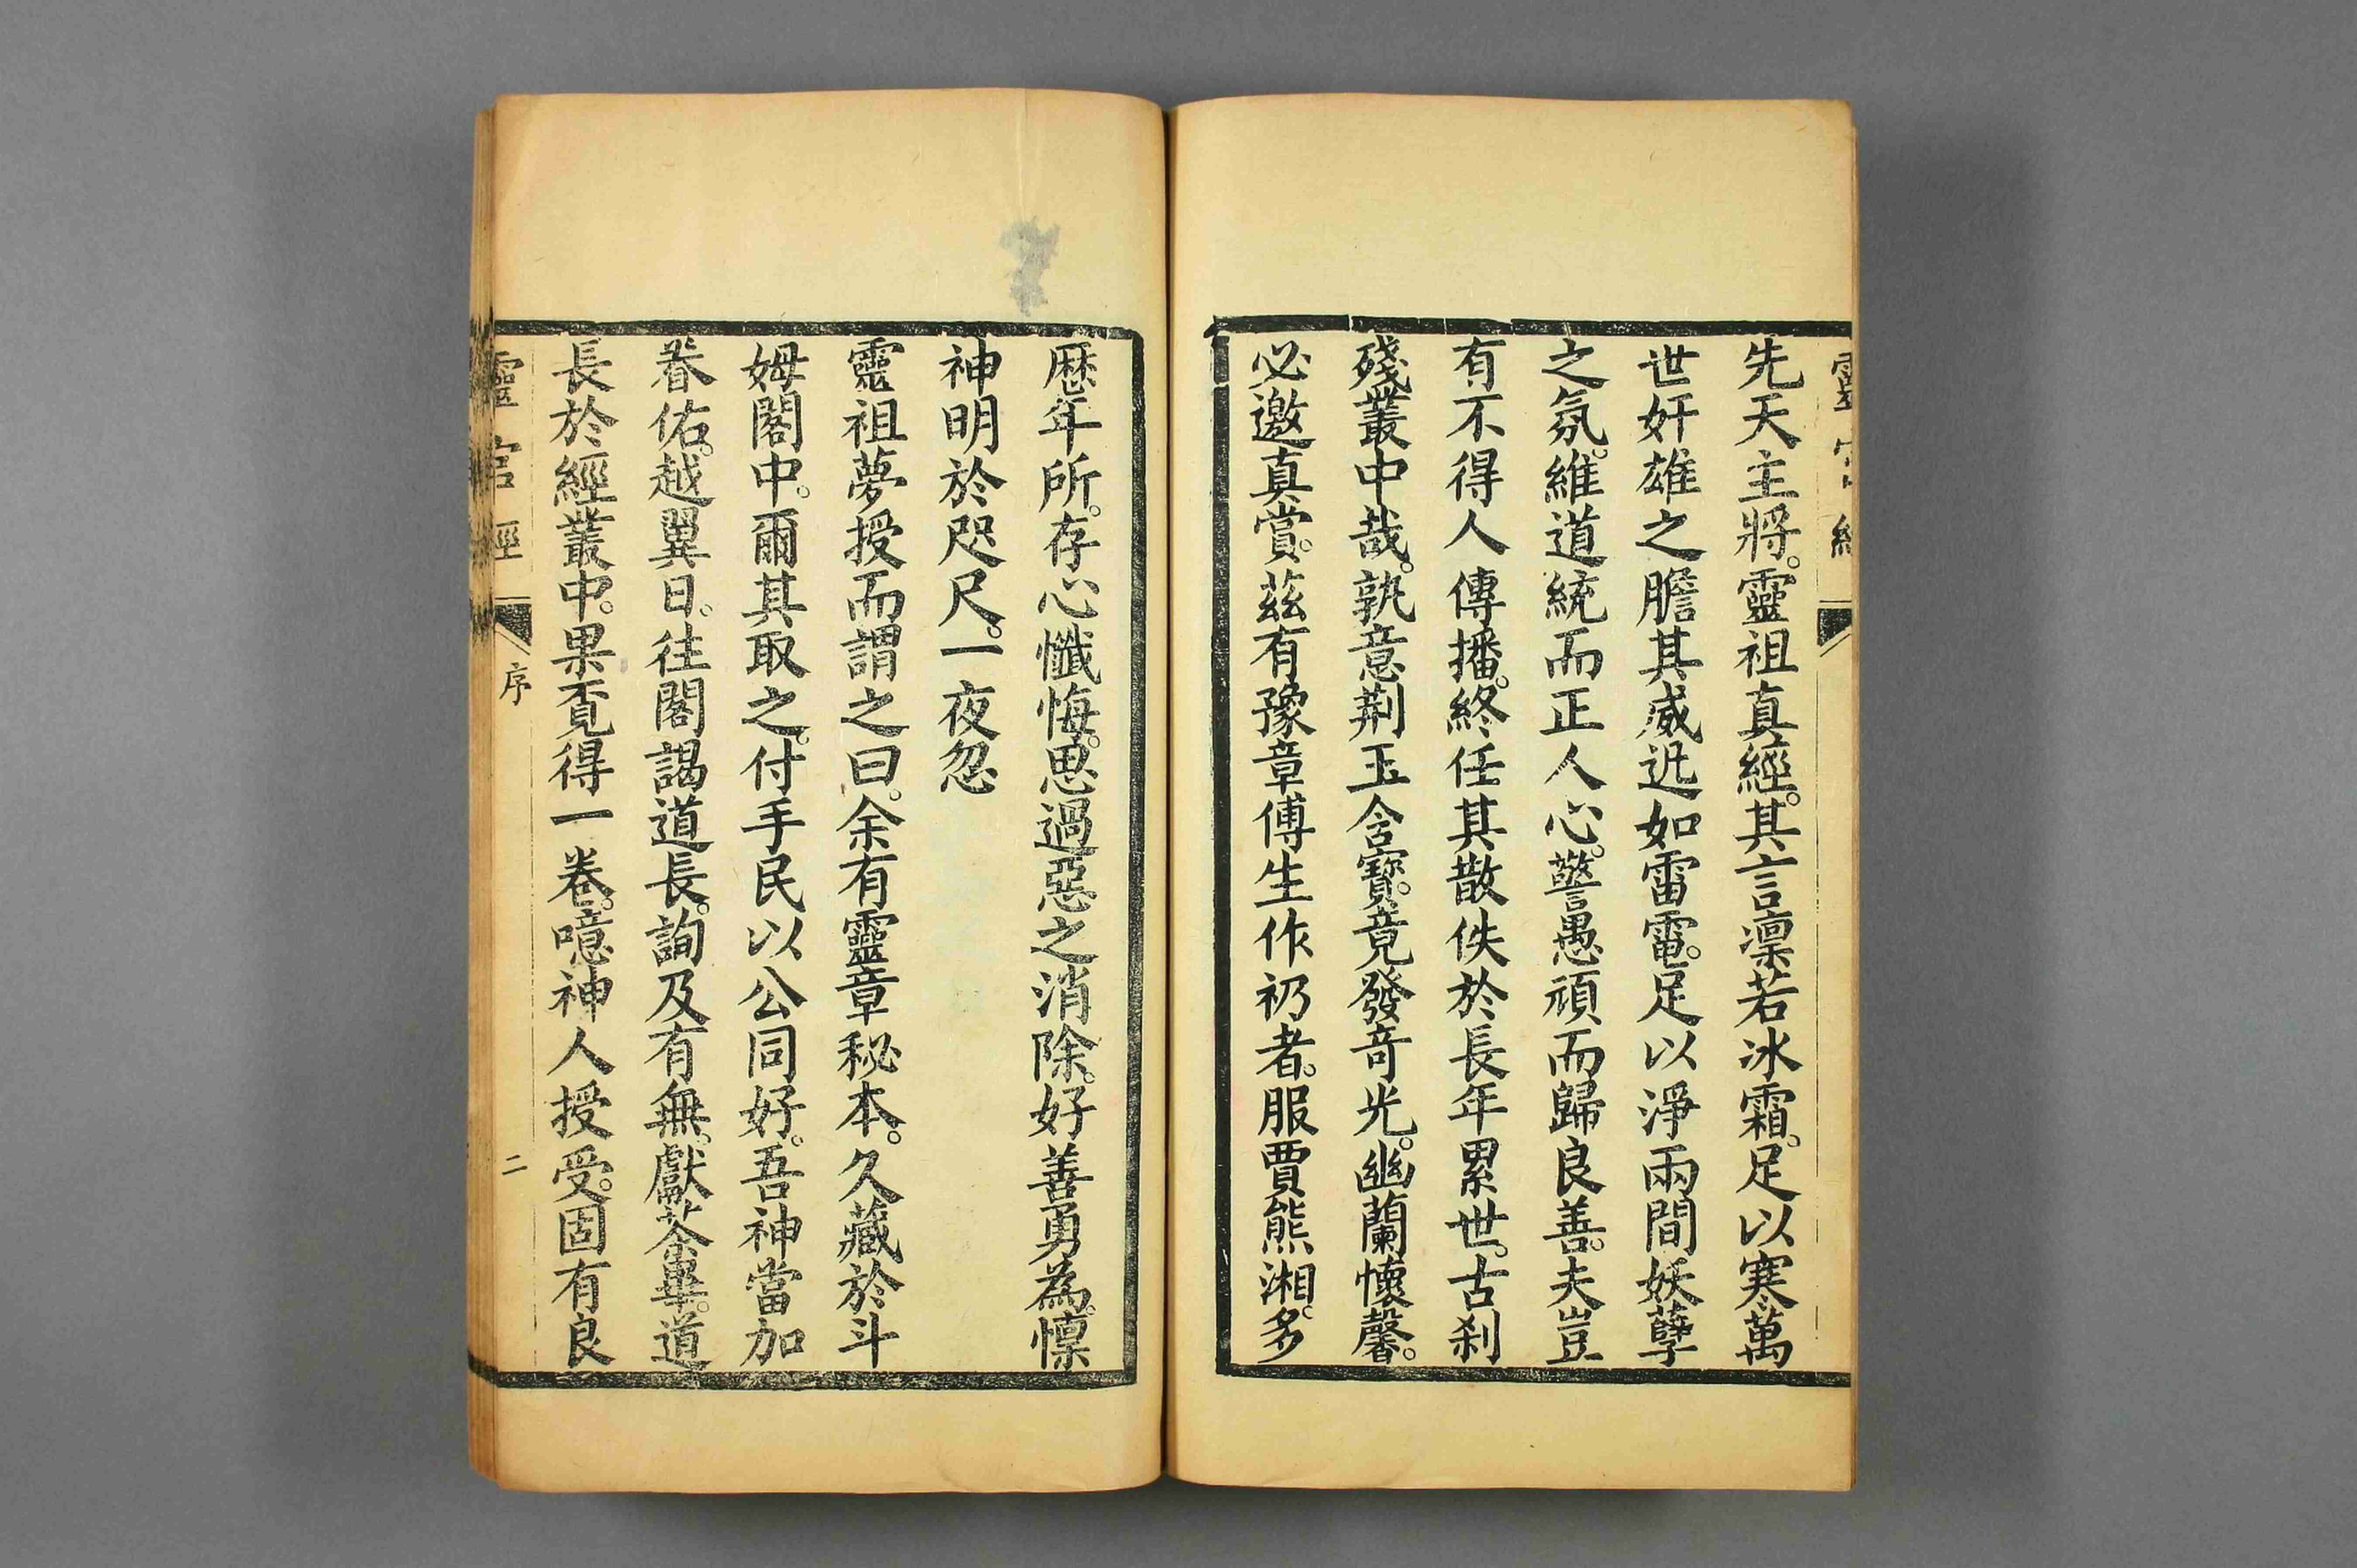 先天主將。靈祖真經。其言凛若冰霜。足以寒萬
世奸雄之膽其威迅如雷電。足以淨兩間妖孽
之氛。維道統而正人心。警愚頑而歸良善。夫豈
有不得人傳播。終任其散佚於長年累世。古刹
殘叢中哉。孰意荆玉含寶。竟發奇光。幽蘭懷馨。
必邀真賞。茲有豫章傅生作礽者。服賈熊湘。多
歷年所。存心懺悔。思過惡之消除。好善勇為。懍
神明於咫尺。一夜忽
靈祖夢授而謂之曰。余有靈章秘本。久藏於斗
姆閣中。爾其取之。付手民以公同好。吾神當加
眷佑。越翼日。往閣謁道長。詢及有無。獻茶畢。道
長於經叢中。果覓得一卷。噫神人授受。固有良
靈官經
序
二